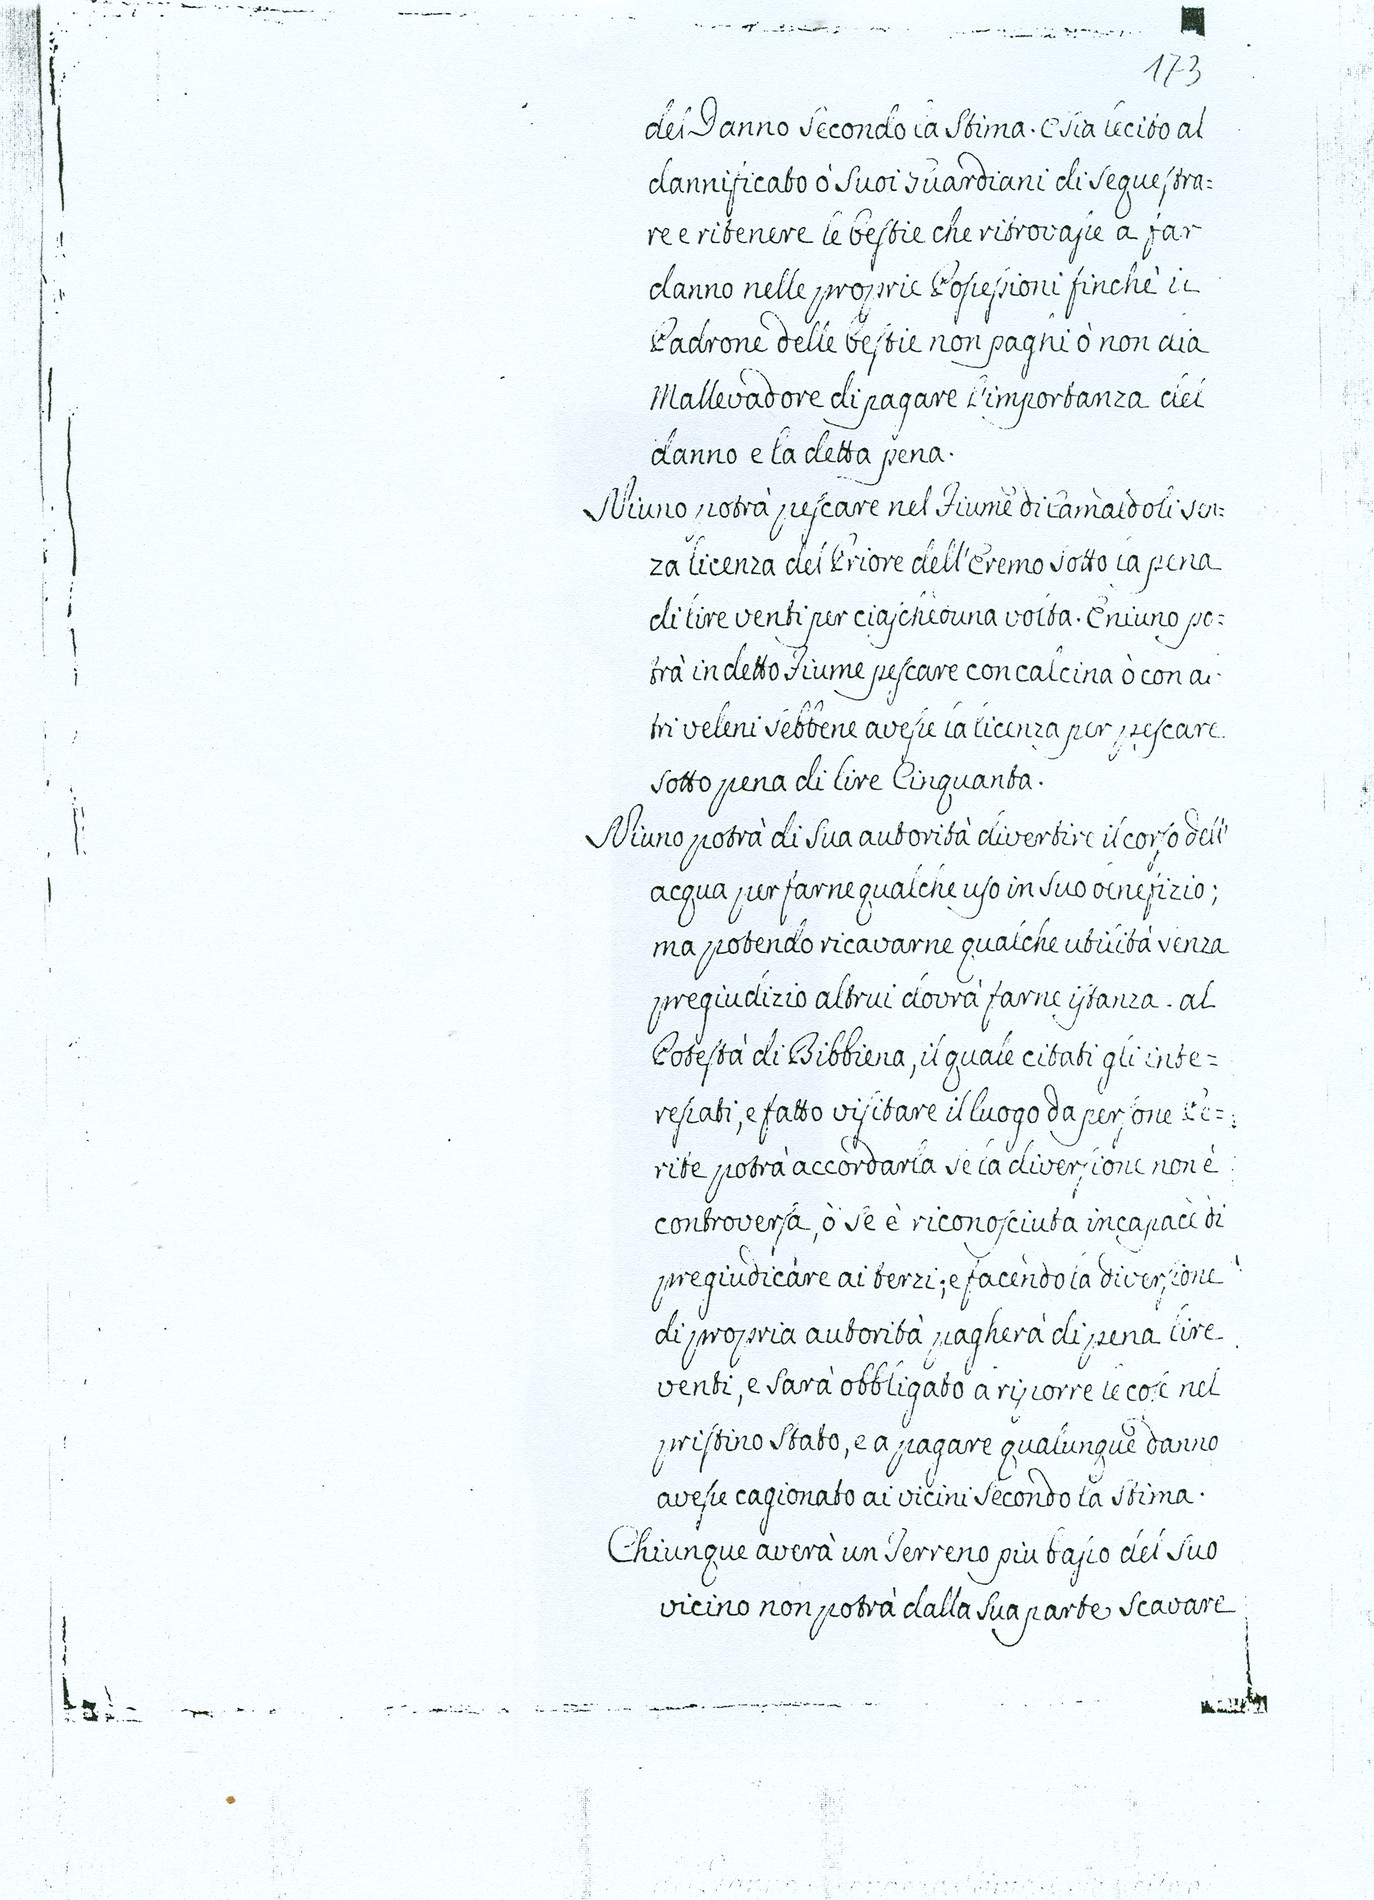 173
del Danno secondo la Stima. E sia lecito al
dannificato ò suoi guardiani di sequestra=
re e ritenere le bestie che ritrovasse a far
danno nelle proprie Possessioni finchè il
Padrone delle bestie non paghi ò non dia
Mallevadore di pagare l'importanza del
danno e la detta pena.
Niuno potrà pescare nel Fiume di Camaldoli sen=
za licenza del Priore dell'Eremo sotto la pena
di lire venti per ciascheduna volta. E niuno po=
trà in detto Fiume pescare con calcina ò con al=
tri veleni sebbene avesse la licenza per pescare
sotto pena di lire Cinquanta.
Niuno potrà di sua autorità divertire il corso dell'
acqua per farne qualche uso in suo benefizio;
ma potendo ricavarne qualche utilità senza
pregiudizio altrui dovrà farne istanza. al
Potestà di Bibbiena, il quale citati gli inte=
ressati, e fatto visitare il luogo da persone Pe=
rite potrà accordarla se la diversione non è
controversa, ò se è riconosciuta incapace di
pregiudicare ai terzi; e facendo la diversione
di propria autorità pagherà di pena lire
venti, e sarà obbligato a riporre le cose nel
pristino stato, e a pagare qualunque danno
avesse cagionato ai vicini secondo la stima.
Chiunque averà un Terreno più basso del suo
vicino non potrà dalla sua parte scavare